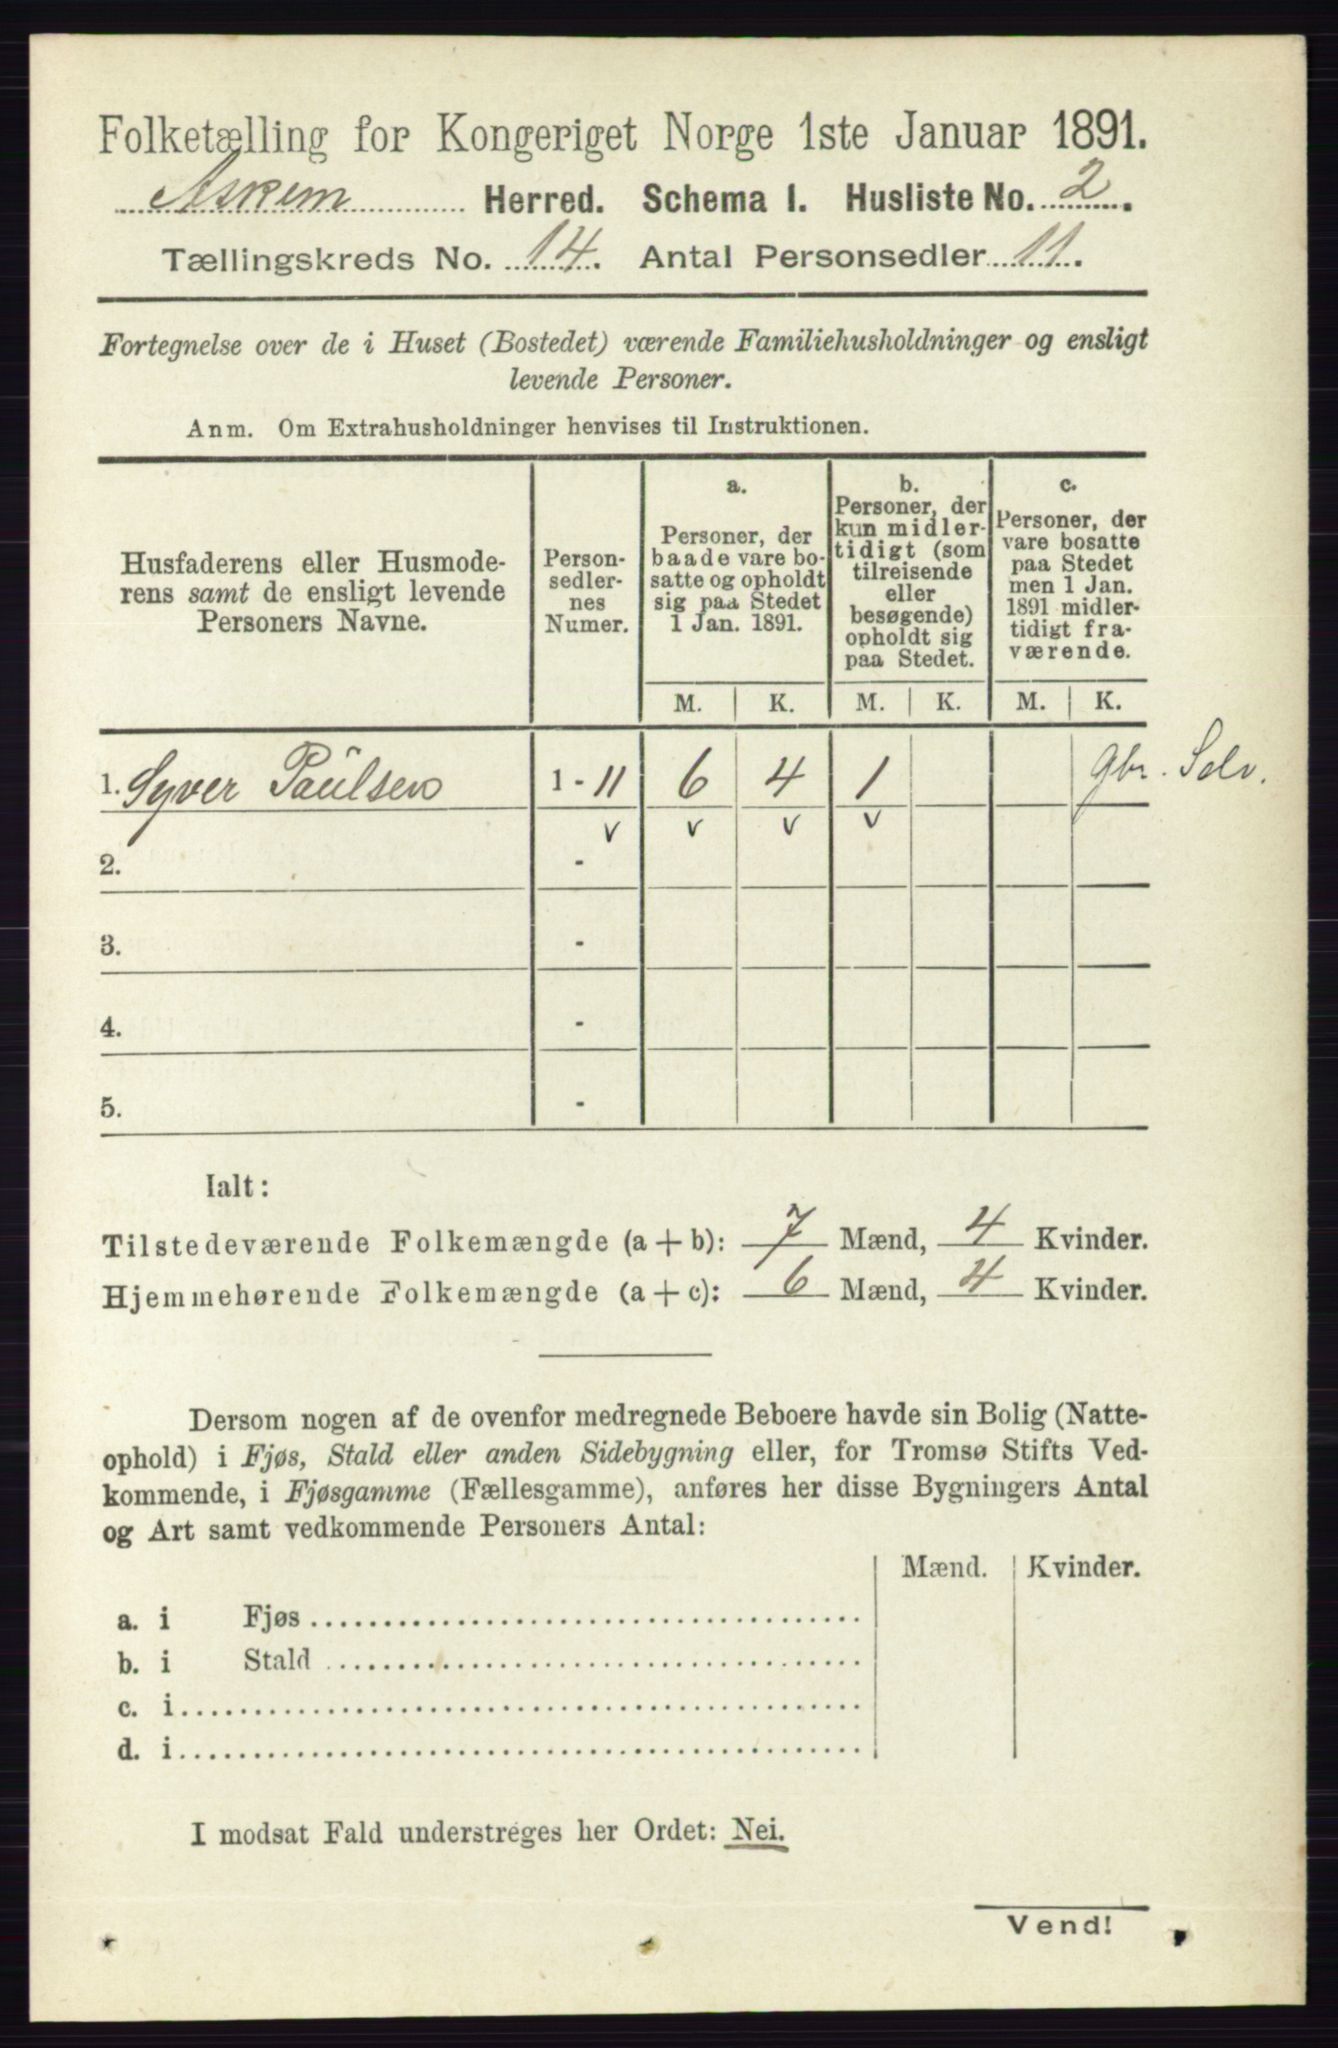 Folketælling for Kongeriget Norge 1ste Januar 1891.
Askim Herred. Schema I. Husliste No. 2.
Tællingskreds No. 14. Antal Personsedler 11.
Fortegnelse over de i Huset (Bostedet) værende Familiehusholdninger og ensligt
levende Personer.
Anm. Om Extrahusholdninger henvises til Instruktionen.
Husfaderens eller Husmode-
rens samt de ensligt levende
Personers Navne.
Person-
sedler-
nes
Numer.
a.
Personer, der
baade vare bo-
satte og opholdt
sig paa Stedet
1 Jan. 1891.
b.
Personer, der
kun midler-
tidigt (som
tilreisende
eller
besøgende)
opholdt sig
paa Stedet.
c.
Personer, der
vare bosatte
paa Stedet
men 1 Jan.
1891 midler-
tidigt fra-
værende.
M. K. M. K. M. K.
1. Syver Paulsen 1 - 11 6 4 1 Gbr. Selv.
v v v v
2. -
3. -
4. -
5. -
Ialt:
Tilstedeværende Folkemængde (a + b): 7 Mænd, 4 Kvinder.
Hjemmehørende Folkemængde (a + c): 6 Mænd, 4 Kvinder.
Dersom nogen af de ovenfor medregnede Beboere havde sin Bolig (Natte-
ophold) i Fjøs, Stald eller anden Sidebygning eller, for Tromsø Stifts Ved-
kommende, i Fjøsgamme (Fællesgamme), anføres her disse Bygningers Antal
og Art samt vedkommende Personers Antal:
Mænd. Kvinder.
a. i Fjøs
b. i Stald
c. i
d. i
I modsat Fald understreges her Ordet: Nei.
Vend!